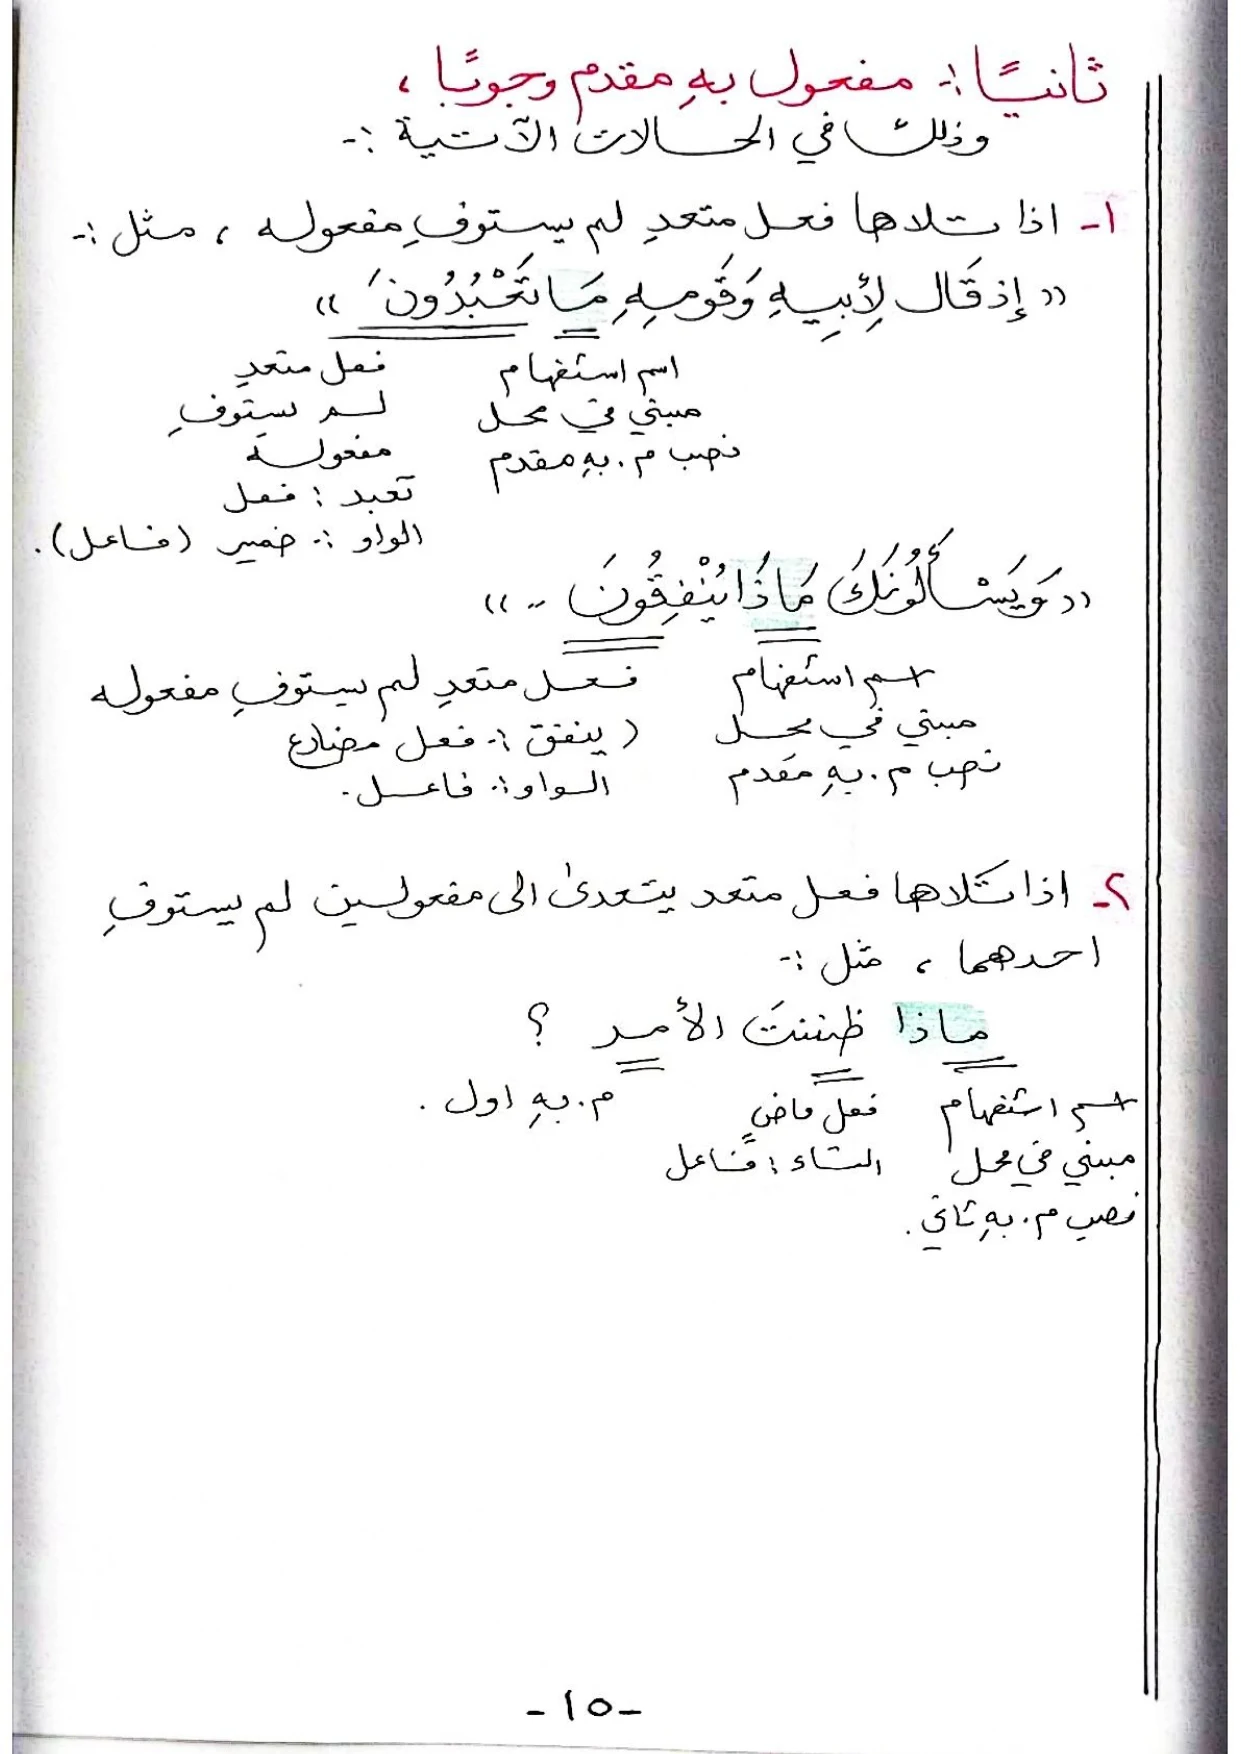 ثانيًا :- مفعول بهِ مقدم وجوبًا ،
وذلك في الحالات الآتية :-
١- اذا تلاها فعل متعدٍ لم يستوفِ مفعوله ، مثل :-
(( إذ قَال لِأبِيِهِ وَقَومِهِ مَا تَعْبُدُونَ ))
اسم استفهام
مبني في محل
نصب م . بهِ مقدم
فعل متعدٍ
لم يستوفِ
مفعوله
تعبد : فعل
الواو :- ضمير (فاعل) .
(( وَيَسْألُونَكَ مَاذَا يُنْفِقُونَ .. ))
اسم استفهام
مبني في محل
نصب م . بهِ مقدم
فعل متعدٍ لم يستوفِ مفعوله
( ينفق :- فعل مضارع
الواو :- فاعل .
٢- اذا تلاها فعل متعد يتعدىٰ الى مفعولين لم يستوفِ
احدهما ، مثل :-
ماذا ظننتَ الأمر ؟
اسم استفهام
مبني في محل
نصب م . بهِ ثاني .
فعل ماضٍ
التاء : فاعل
م . بهِ اول .
- ١٥ -